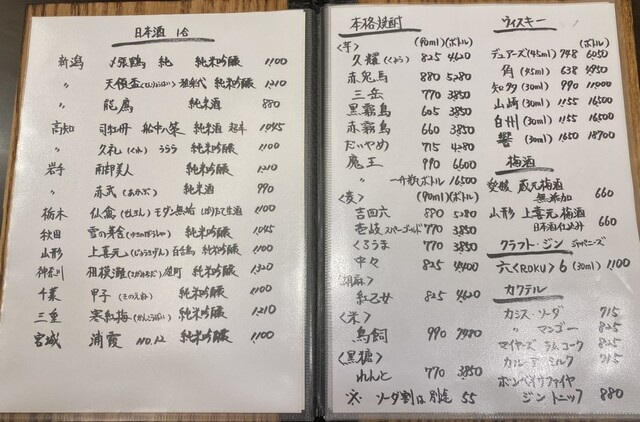 日本酒 1合
新潟 〆張鶴 純 純米吟醸 1100
〃 天領盃 純米吟醸 1210
〃 能鷹 純米酒 880
高知 司牡丹 船中八策 純米酒 超辛 1045
〃 久礼(くれ) うらら 純米吟醸 1100
岩手 南部美人 純米吟醸 1210
〃 赤武(あかぶ) 純米酒 990
栃木 仙禽(せんきん) モダン無垢 1100
秋田 雪の茅舎(ゆきのぼうしゃ) 純米吟醸 1045
山形 上喜元(じょうきげん) 純米吟醸 1100
神奈川 相模灘(さがみなだ) 雄町 純米吟醸 1320
千葉 甲子(きのえね) 純米吟醸 1100
三重 寒紅梅(かんこうばい) 純米吟醸 1210
宮城 浦霞 NO.12 純米吟醸 1100
本格焼酎 (90ml) (ボトル)
<芋>
久耀(くよう) 825 4620
赤兎馬 880 5280
三岳 770 3850
黒霧島 605 3850
赤霧島 660 3850
だいやめ 715 4280
魔王 990 6600
〃 一升瓶ボトル 16500
<麦> (90ml) (ボトル)
吉四六 880 5280
壱岐スーパーゴールド 770 3850
くろうま 770 3850
中々 825 4400
<胡麻>
紅乙女 825 4620
<米>
鳥飼 990 7480
<黒糖>
れんと 770 3850
※ ソーダ割は別途 55
ウィスキー
(ボトル)
デュアーズ(45ml) 748 6050
角 (45ml) 638 4950
知多 (30ml) 990 11000
山崎 (30ml) 1155 16500
白州 (30ml) 1155 16500
響 (30ml) 1650 18700
梅酒
愛媛 蔵元梅酒 無添加 660
山形 上喜元 梅酒 日本酒仕込み 660
クラフト・ジン ジャパニーズ
六<ROKU>6 (30ml) 1100
カクテル
カシス・ソーダ 715
〃 マンゴー 825
マイヤーズ ラムコーク 825
カルーアミルク 715
ボンベイサファイヤ
ジントニック 880